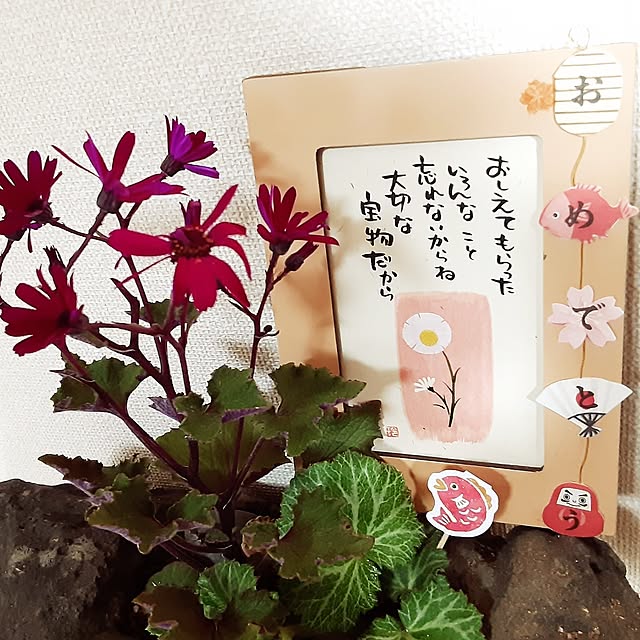 おしえてもらった
いろんなこと
忘れないからね
大切な
宝物だから
お
め
で
と
う